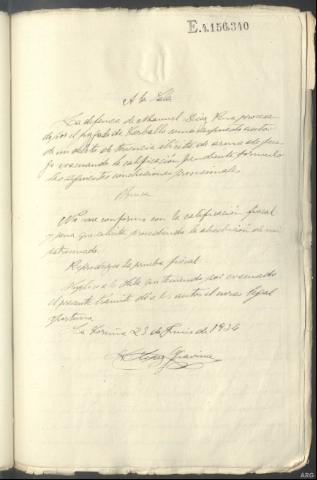 E.4.156.340
A la Sala
La defensa de Manuel Diaz Pena procesa
do por el Juzgado de Carballo como responsable autor
de un delito de tenencia ilícita de arma de fue
go evacuando la calificación pendiente formula
las siguientes conclusiones provisionales
Unica
No me conformo con la calificación fiscal
y pena que solicita procediendo la absolución de mi
patrocinado.
Reproduzco la prueba fiscal.
Suplico a la Sala que teniendo por evacuado
el presente trámite dé a los autos el curso legal
oportuno.
La Coruña 23 de Junio de 1934
ARG